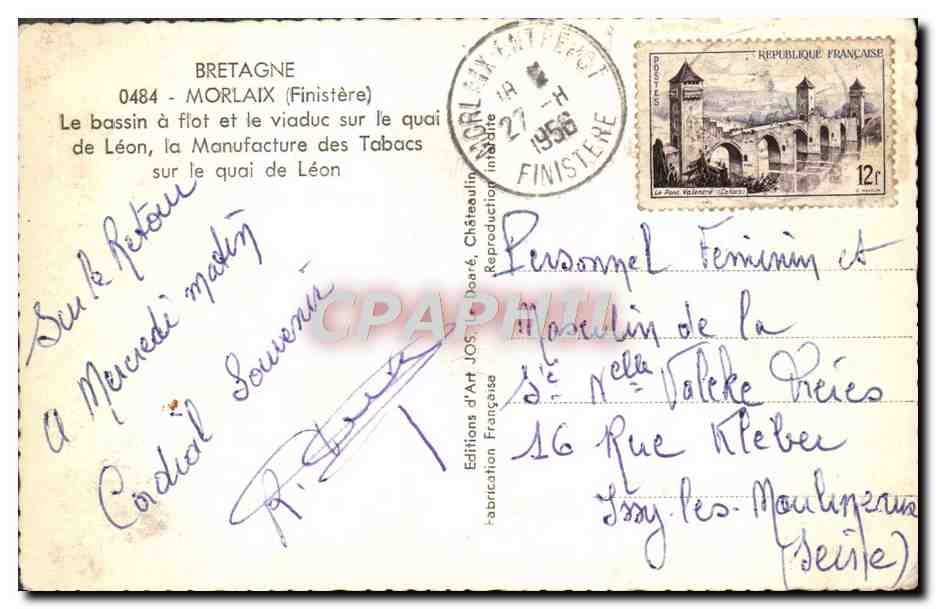 BRETAGNE
0484 - MORLAIX (Finistère)
Le bassin à flot et le viaduc sur le quai
de Léon, la Manufacture des Tabacs
sur le quai de Léon
Sur le Retour
A Mercredi matin
Cordial Souvenir
R.
Editions d'Art JOS. Le Doaré, Châteaulin
Fabrication Française
Reproduction interdite
MORLAIX-ENTREPOT
18 H
27 - 1956
FINISTERE
REPUBLIQUE FRANÇAISE
POSTES
Le Pont Valentré (Cahors)
12f
Personnel Feminin et
Masculin de la
Sté Nelle Valcke Frères
16 Rue Kleber
Issy-les-Moulineaux
(Seine)
CPAPHIL